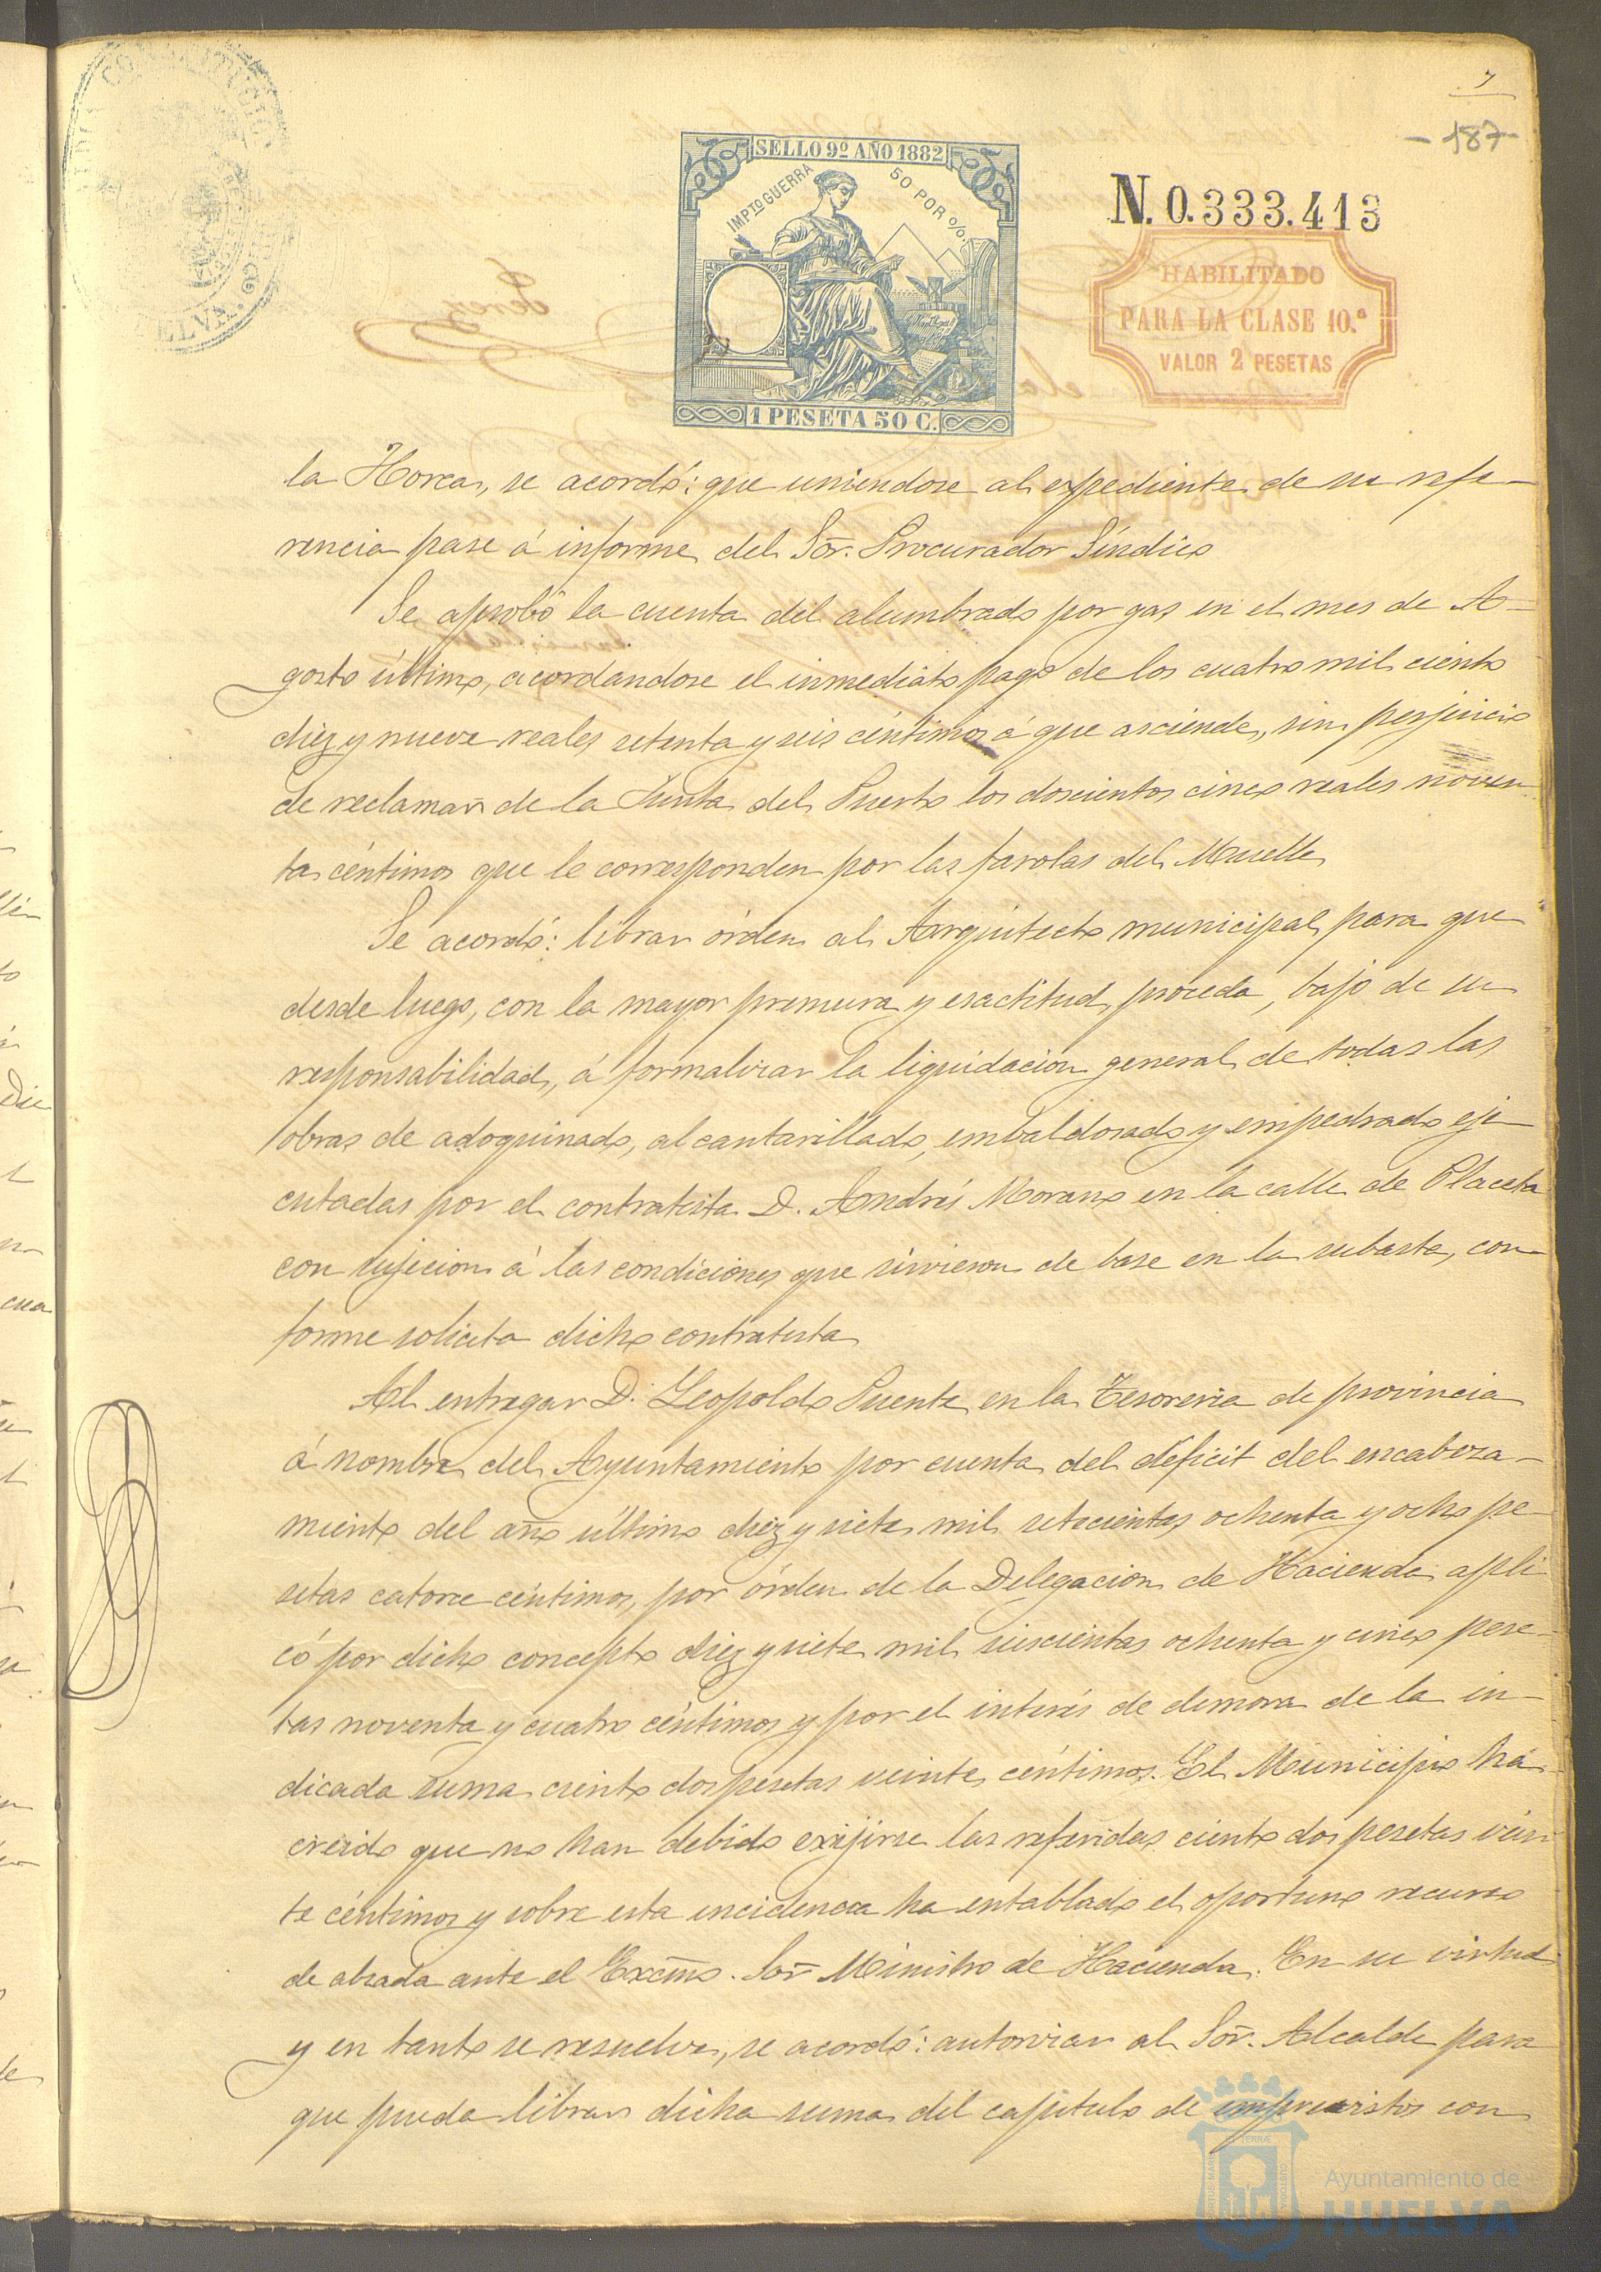 7
-187-
SELLO 9º AÑO 1882
IMPTO GUERRA 50 POR %
1 PESETA 50 C.
N. 0.333.413
HABILITADO
PARA LA CLASE 10.ª
VALOR 2 PESETAS
la Horca, se acordó: que uniendose al expediente de su refe-
rencia pase á informe del Sor. Procurador Síndico
Se aprobó la cuenta del alumbrado por gas en el mes de A-
gosto último, acordandose el inmediato pago de los cuatro mil ciento
diez y nueve reales setenta y seis céntimos á que asciende, sin perjuicio
de reclamar de la Junta del Puerto los doscientos cinco reales noven-
ta céntimos que le corresponden por las farolas del Muelle
Se acordó: librar órden al Arquitecto municipal para que
desde luego, con la mayor premura y esactitud, proceda, bajo de su
responsabilidad, á formalizar la liquidacion general de todas las
obras de adoquinado, alcantarillado, embaldosado y empedrado eje-
cutadas por el contratista D. Andrés Morano en la calle de Placeta
con sujecion á las condiciones que sirvieron de base en la subasta, con-
forme solicita dicho contratista
Al entregar D. Leopoldo Puente en la Tesoreria de provincia
á nombre del Ayuntamiento por cuenta del déficit del encabeza-
miento del año último diez y siete mil setecientas ochenta y ocho pe-
setas catorce céntimos, por órden de la Delegacion de Hacienda apli
có por dicho concepto diez y siete mil seiscientas ochenta y cinco pese-
tas noventa y cuatro céntimos y por el interés de demora de la in-
dicada suma ciento dos pesetas veinte céntimos. El Municipio há
creido que no han debido exijirse las referidas ciento dos pesetas vein
te céntimos y sobre esta incidencia ha entablado el oportuno recurso
de alzada ante el Excmo. Sor Ministro de Hacienda. En su virtud
y en tanto se resuelve, se acordó: autorizar al Sor. Alcalde para
que pueda librar dicha suma del capitulo de imprevistos con
Ayuntamiento de
HUELVA